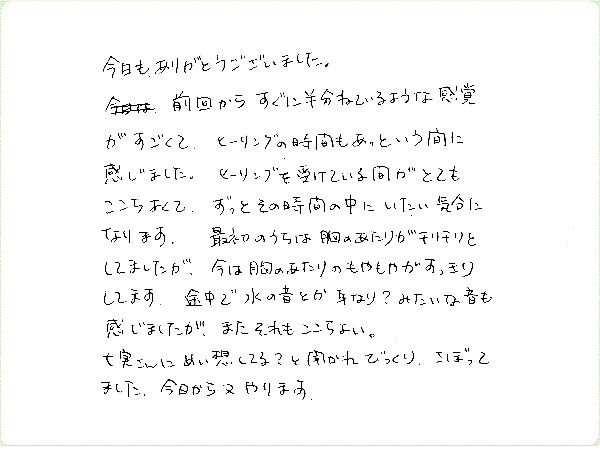 今日も、ありがとうございました。
今日は、前回からすぐに半分ねているような感覚
がすごくて、ヒーリングの時間もあっという間に
感じました。ヒーリングを受けている間がとても
ここちよくて、ずっとその時間の中にいたい気分に
なります。最初のうちは胸のあたりがチリチリと
してましたが、今は胸のあたりのもやもやがすっきり
してます。途中で水の音とか耳なり?みたいな音も
感じましたが、またそれもここちよい。
七実さんにめい想してる?と聞かれびっくり、さぼって
ました。今日から又やります。